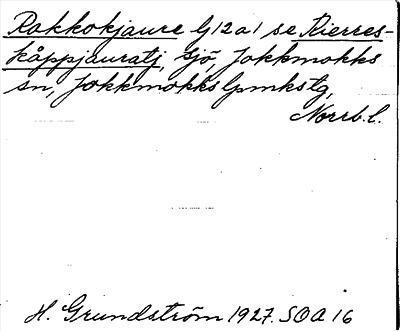 Rakkokjaure lj12a1 se Kierres-
kåppjauratj, sjö, Jokkmokks
sn, Jokkmokks lpmkstg,
Norrb. l.
H. Grundström 1927. SOA 16